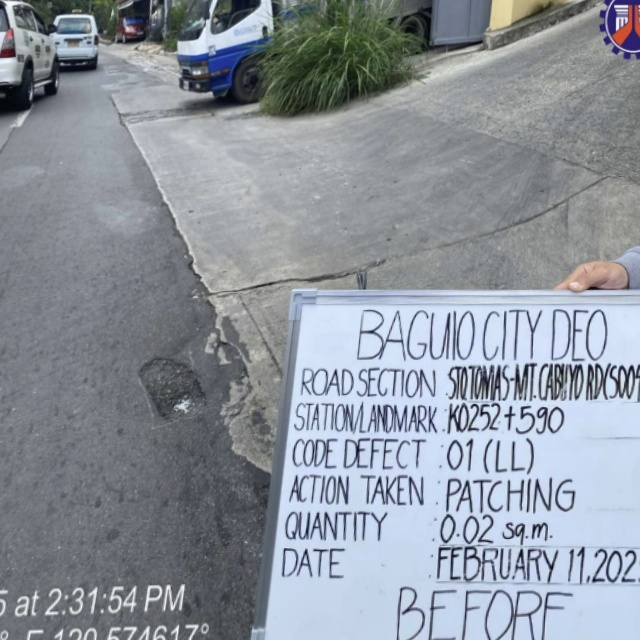 BAGUIO CITY DEO
ROAD SECTION : STO TOMAS-MT. CABUYO RD (S004
STATION/LANDMARK : K0252+590
CODE DEFECT : 01 (LL)
ACTION TAKEN : PATCHING
QUANTITY : 0.02 sq.m.
DATE : FEBRUARY 11, 202
BEFORE
5 at 2:31:54 PM
° E 120.574617°